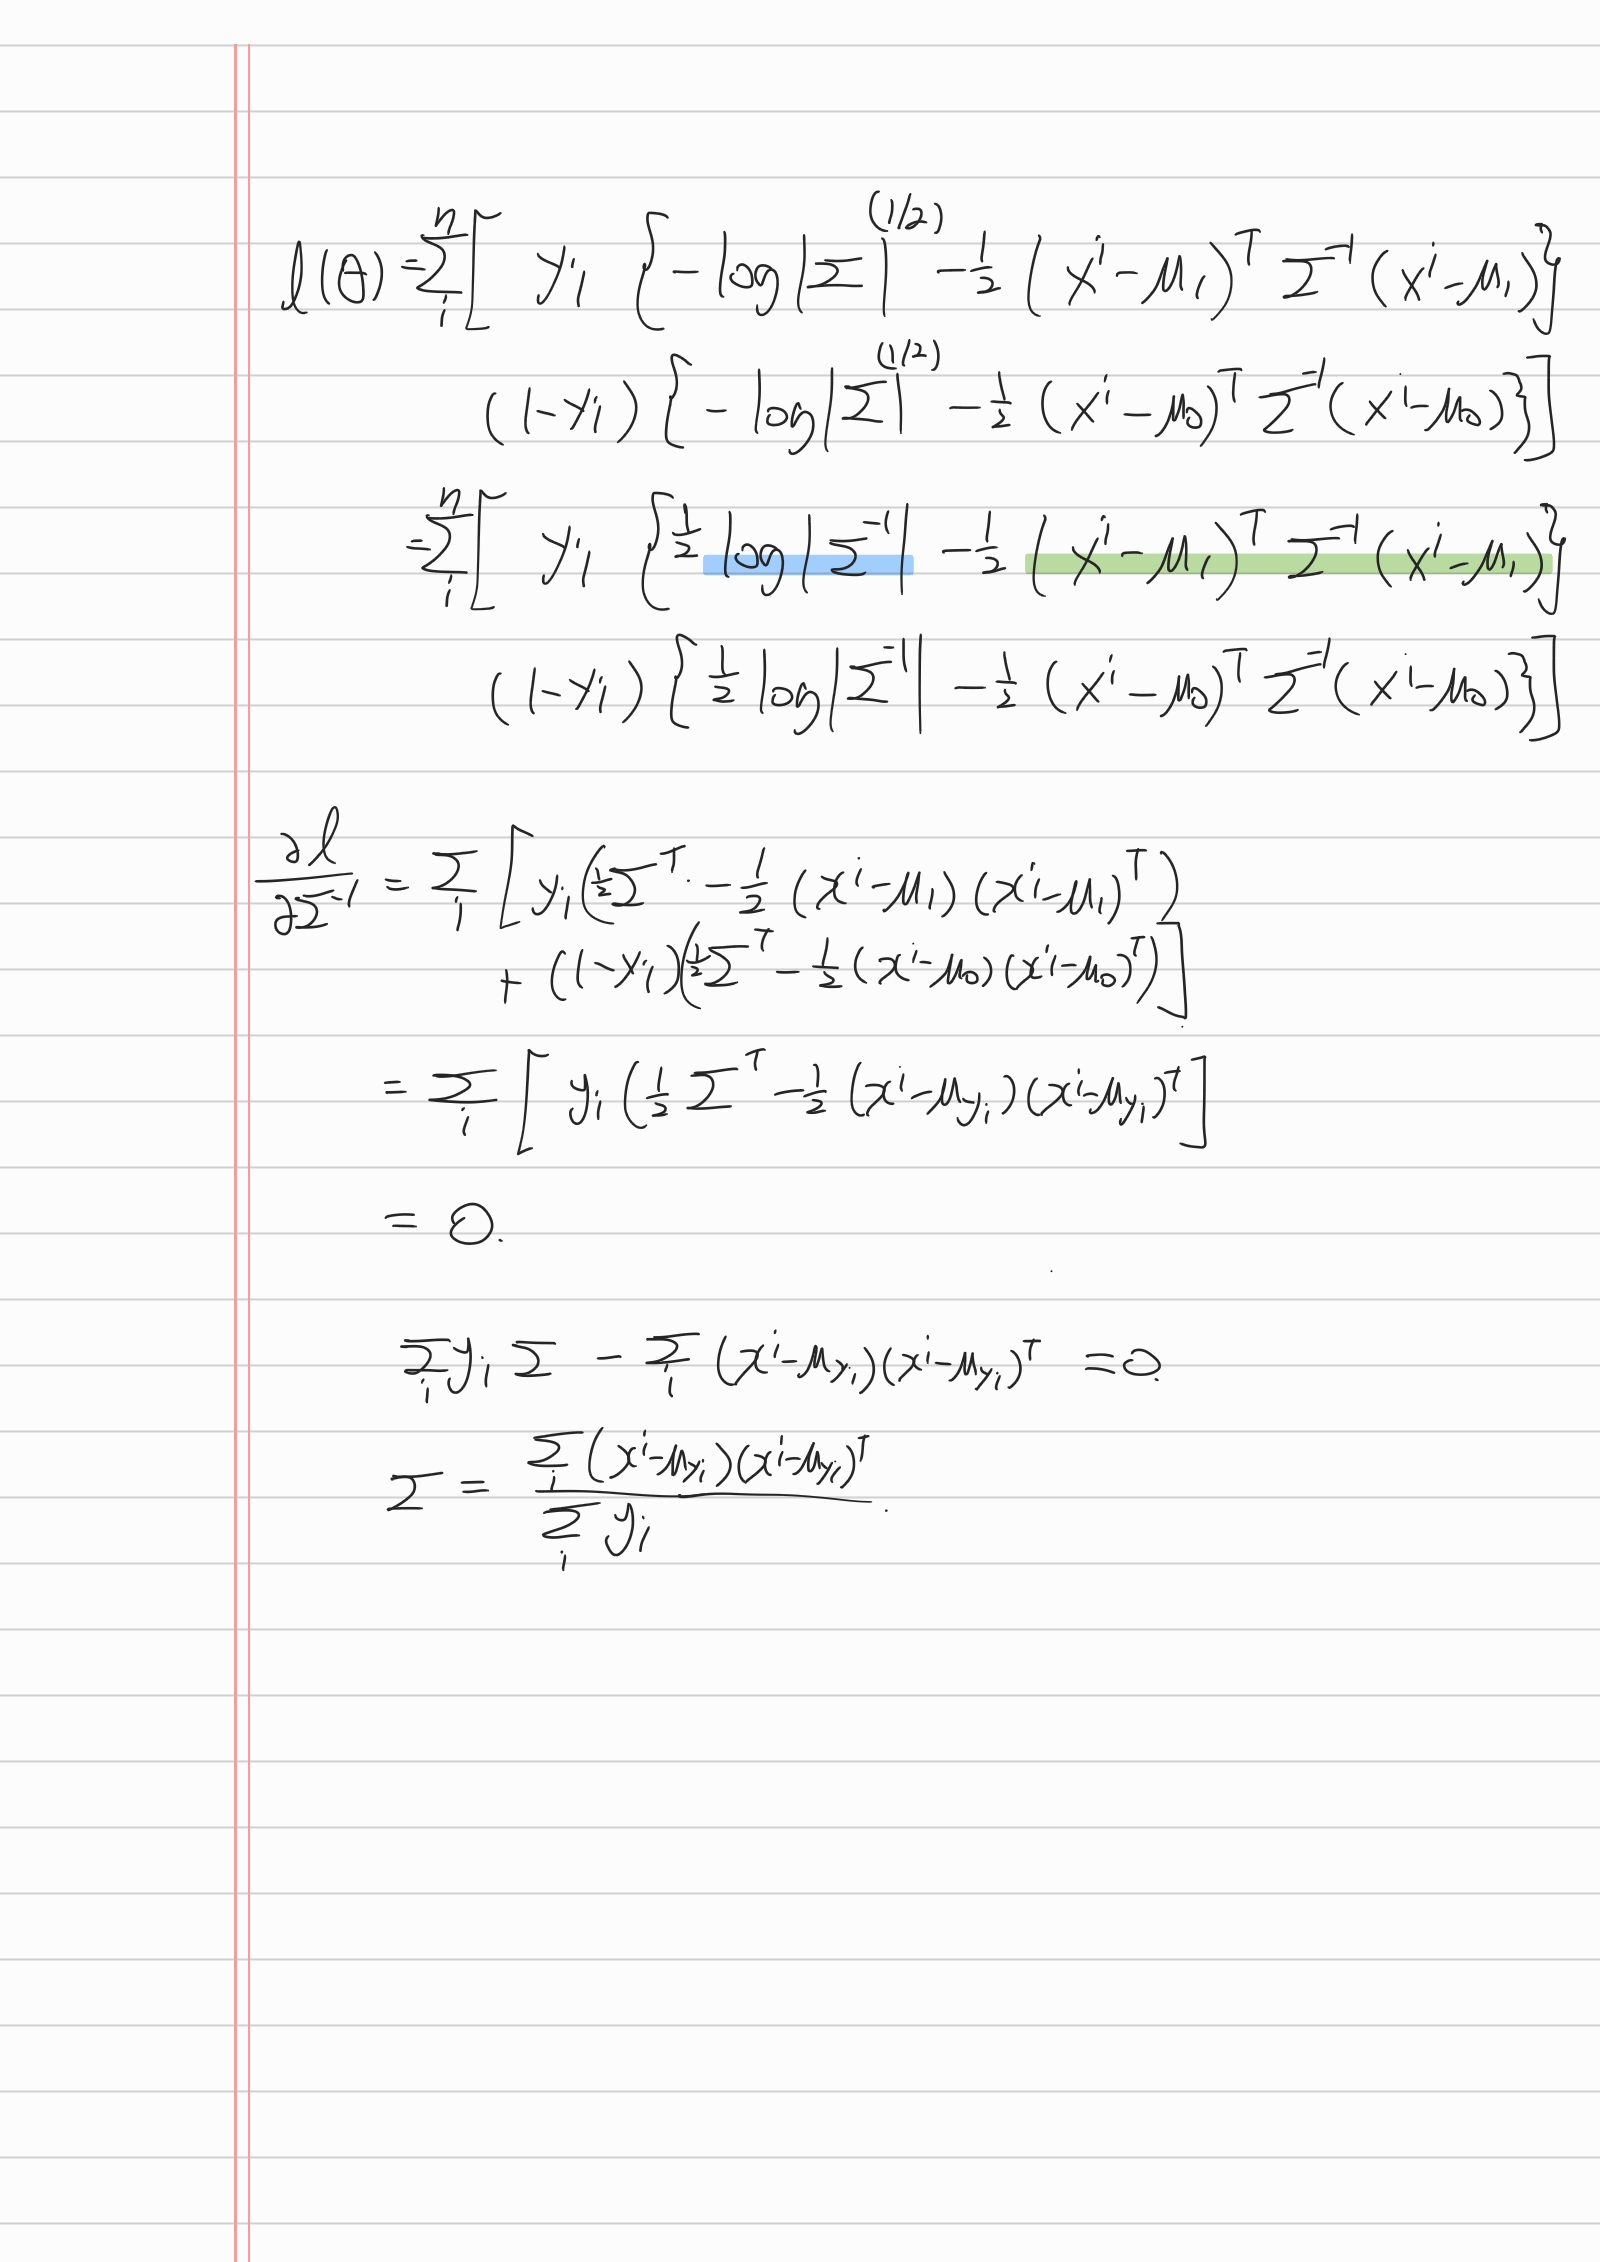 l(θ) = Σ_i^n [ y_i { - log|Σ|^(1/2) - 1/2 (x^i - μ_1)^T Σ^-1 (x^i - μ_1) }
(1 - y_i) { - log|Σ|^(1/2) - 1/2 (x^i - μ_0)^T Σ^-1 (x^i - μ_0) } ]
= Σ_i^n [ y_i { 1/2 log|Σ^-1| - 1/2 (x^i - μ_1)^T Σ^-1 (x^i - μ_1) }
(1 - y_i) { 1/2 log|Σ^-1| - 1/2 (x^i - μ_0)^T Σ^-1 (x^i - μ_0) } ]
∂l/∂Σ^-1 = Σ_i [ y_i ( 1/2 Σ^T - 1/2 (x^i - μ_1)(x^i - μ_1)^T )
+ (1 - y_i) ( 1/2 Σ^T - 1/2 (x^i - μ_0)(x^i - μ_0)^T ) ]
= Σ_i [ y_i ( 1/2 Σ^T - 1/2 (x^i - μ_y_i)(x^i - μ_y_i)^T ]
= 0.
Σ_i y_i Σ - Σ_i (x^i - μ_y_i)(x^i - μ_y_i)^T = 0.
Σ = Σ_i (x^i - μ_y_i)(x^i - μ_y_i)^T / Σ_i y_i .